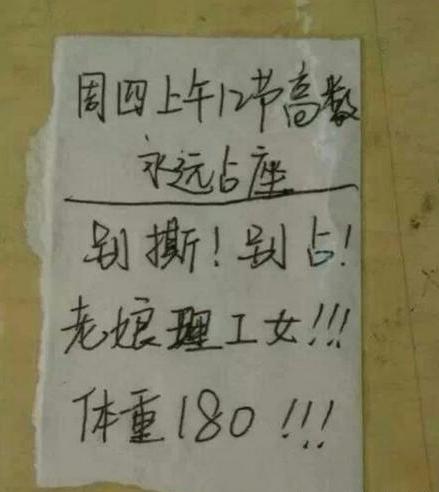 周四上午12节高数
永远占座
别撕！别占！
老娘理工女！！！
体重180！！！